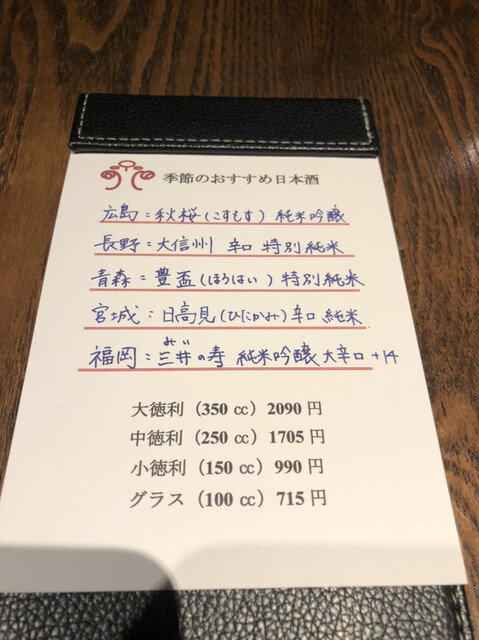 季節のおすすめ日本酒
広島：秋桜(こすもす) 純米吟醸
長野：大信州 辛口 特別純米
青森：豊盃(ほうはい) 特別純米
宮城：日高見(ひたかみ)辛口 純米
みい
福岡：三井の寿 純米吟醸 大辛口+14
大徳利（350 cc）2090 円
中徳利（250 cc）1705 円
小徳利（150 cc）990 円
グラス（100 cc）715 円